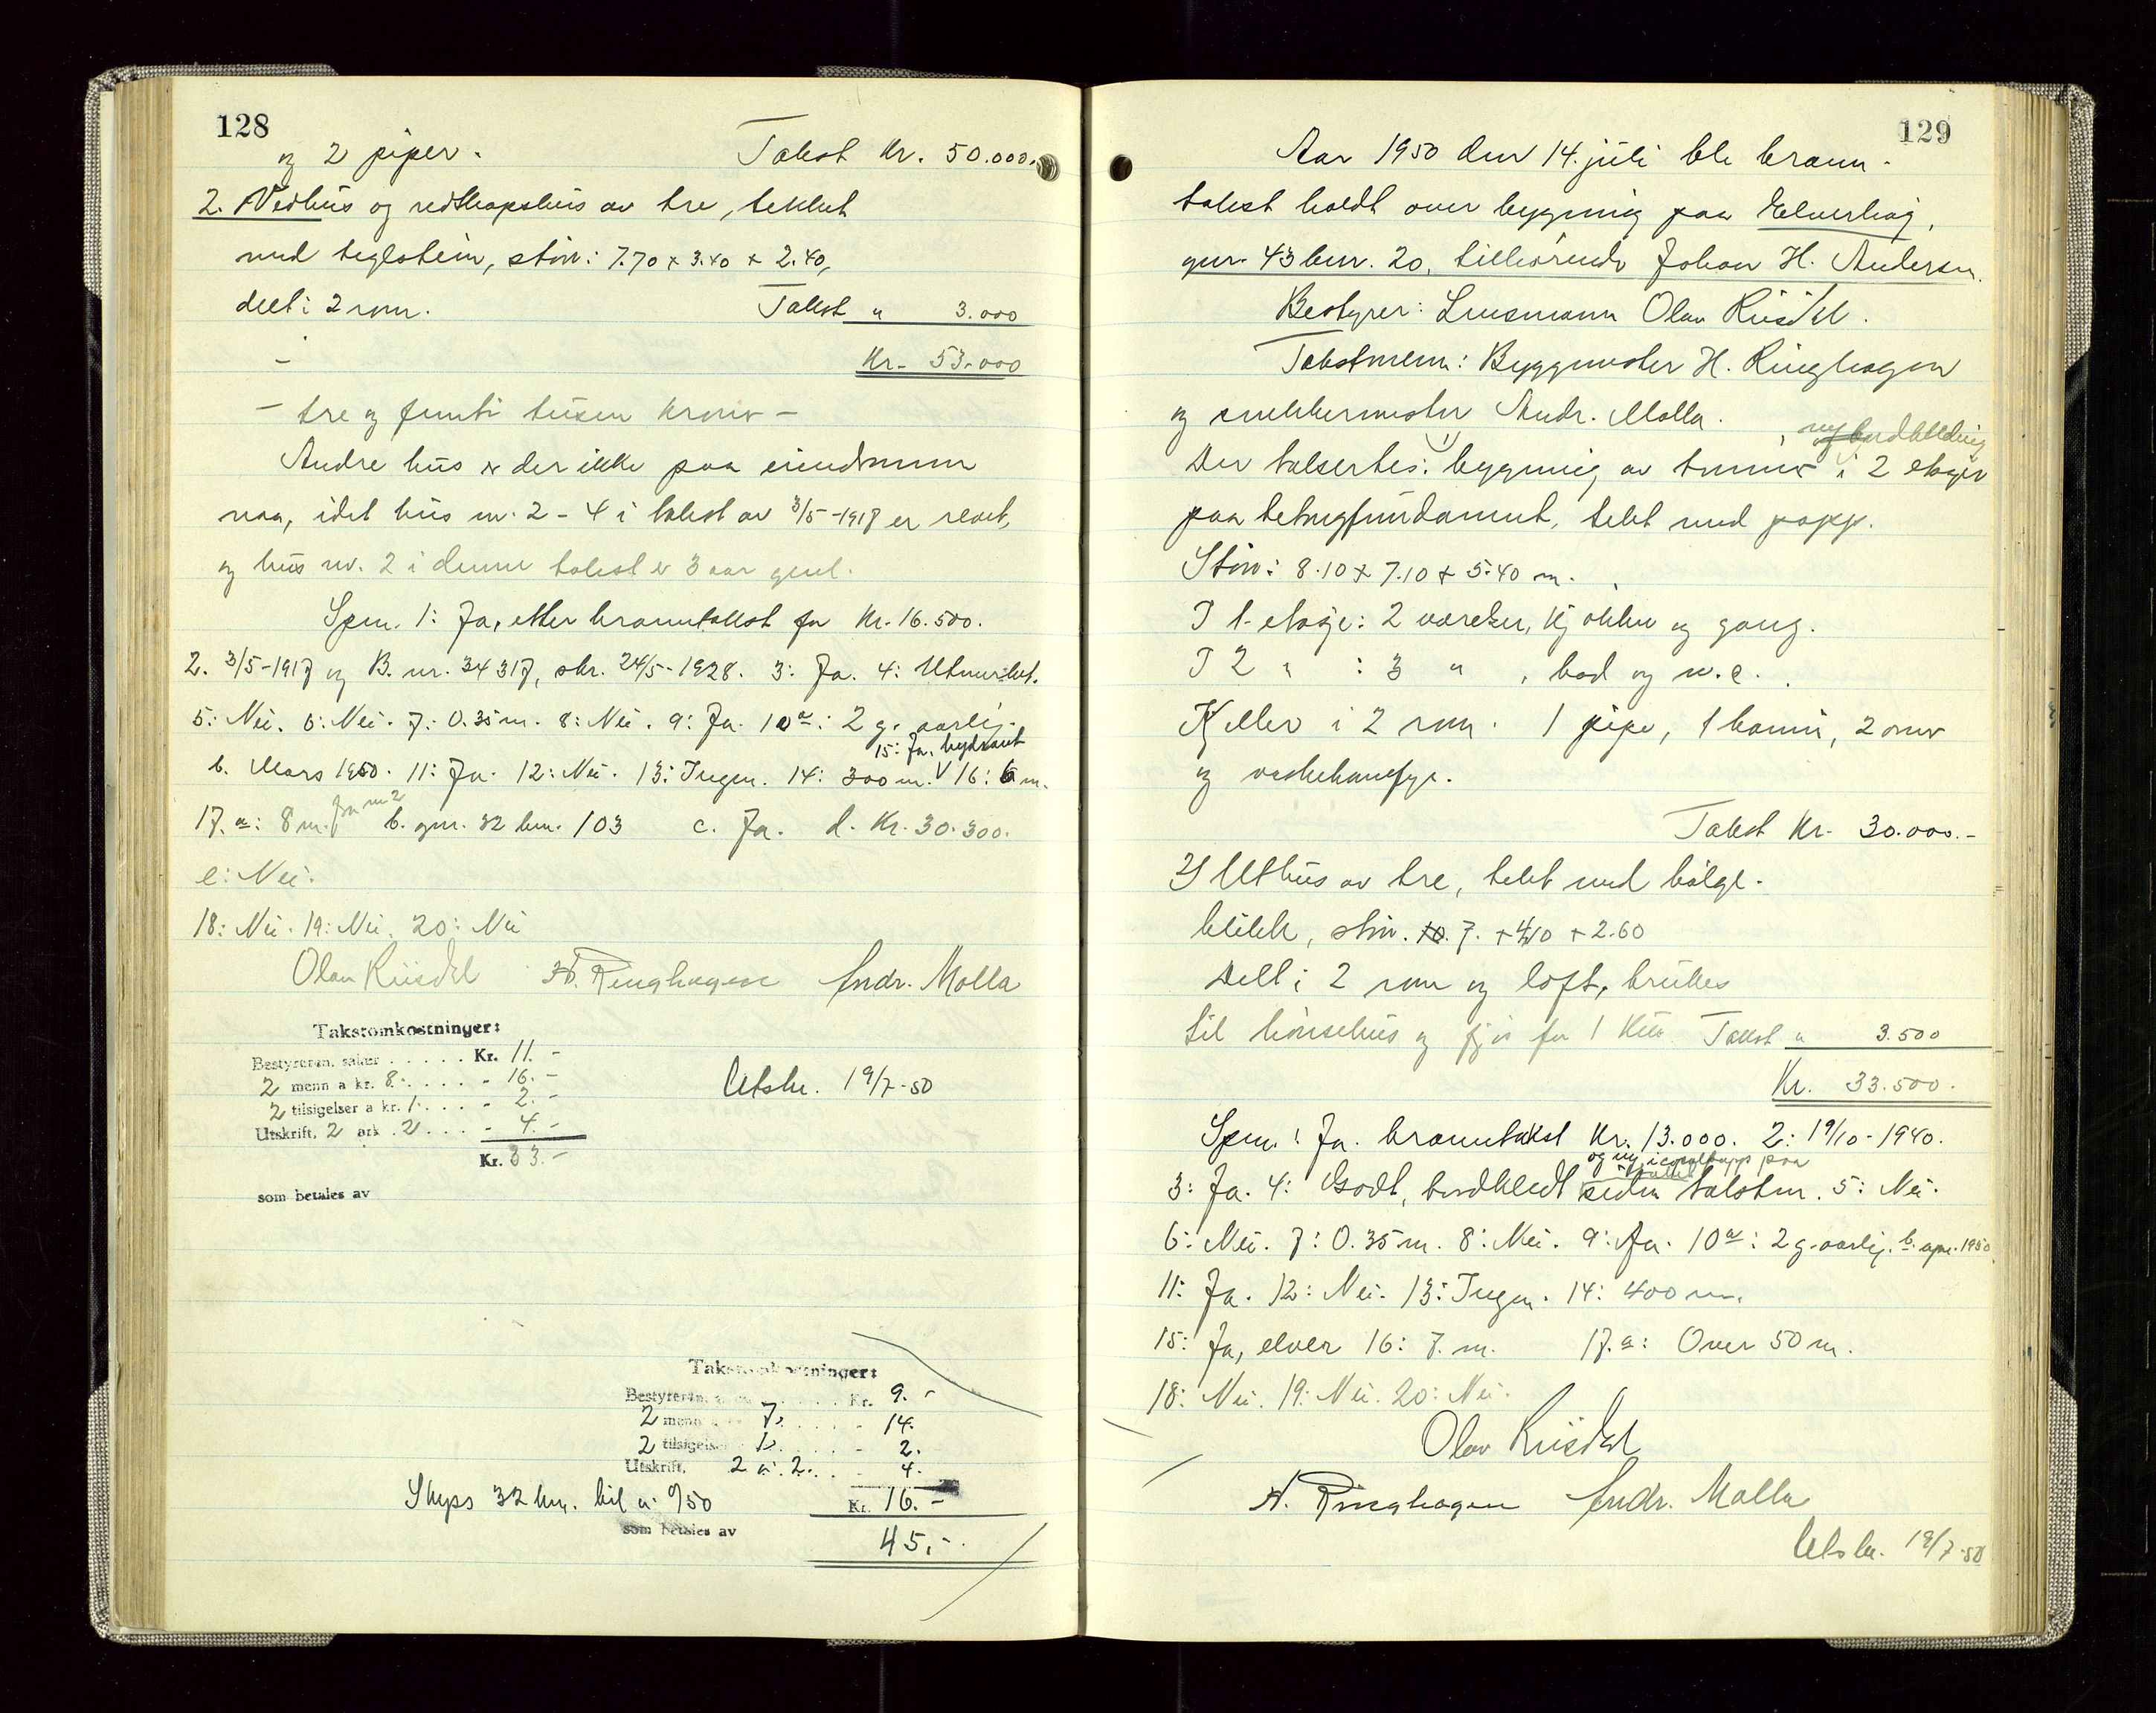 128
og 2 piper. Takst Kr. 50.000.
2. Vedhus og redskapshus av tre, tekket
med teglstein, størr: 7.70 x 3.40 x 2.40,
delt i 2 rom. Takst " 3.000
Kr. 53.000
- tre og femti tusen kroner -
Andre hus er der ikke paa eiendommen
naa, idet hus nr. 2 - 4 i takst av 3/5-1917 er revet,
og hus nr. 2 i denne takst er 3 aar gml.
Spm. 1: Ja, etter branntakst for Kr. 16.500.
2. 3/5-1917 og B. nr. 34317, skr. 24/5-1928. 3: Ja. 4: Utmerket.
5: Nei. 6: Nei. 7: 0.35 m. 8: Nei. 9: Ja. 10 a: 2 g. aarlig.
15: Ja. hydrant
b. Mars 1950. 11: Ja. 12: Nei. 13: Ingen. 14: 300 m. V 16: 6 m.
17. a: 8 m. fra nr 2 b. gnr. 32 bnr. 103 c. Ja. d. Kr. 30.300.
e: Nei.
18: Nei. 19: Nei. 20: Nei
Olav Riisdal H. Ringhagen Andr. Molla
Takstomkostninger:
Bestyreren, salær . . . . . Kr. 11. -
2 menn a kr. 8. . . . . - 16. -
2 tilsigelser a kr. 1. . . . - 2. -
Utskrift, 2 ark . 2 . . . - 4. -
Kr. 33. -
som betales av
Utskr. 19/7-50
Takstomkostninger:
Bestyreren, Kr. 9. -
2 menn 7. . . . . - 14.
2 tilsigelser 1. . . . . - 2.
Utskrift, 2 a. 2. . . - 4.
Skyss 32 km. bil a. 0/50 Kr. 16. -
som betales av
45. -
129
Aar 1950 den 14. juli ble brann-
takst holdt over bygning paa Elverhøg,
gnr. 43 bnr. 20, tilhørende Johan H. Andersen.
Bestyrer: Lensmann Olav Riisdal.
Takstmenn: Byggmester H. Ringhagen
og snekkermester Andr. Molla.
, ny bordkledning
Der takseртes: 1) bygning av tømmer i 2 etager
paa betongfundament, tekt med papp.
Størr: 8.10 x 7.10 x 5.40 m.
I 1. etage: 2 værelser, kjøkken og gang.
I 2 " : 3 " , bad og w.c.
Kjeller i 2 rom. 1 pipe, 1 kamin, 2 ovner
og vedkomfyr.
Takst Kr. 30.000.-
2) Uthus av tre, tekt med bølge-
blikk, størr. 7. x 4.10 x 2.60
Delt i 2 rom og loft, brukes
til hønsehus og fjøs for 1 ku Takst " 3.500
Kr. 33.500.
Spm. 1 Ja. branntakst Kr. 13.000. 2: 19/10-1940.
og ny papp paa
3: Ja. 4: Godt, bordkledt siden taksten. 5: Nei.
6: Nei. 7: 0.35 m. 8: Nei. 9: Ja. 10 a: 2 g. aarlig. b. apr. 1950
11: Ja. 12: Nei. 13: Ingen. 14: 400 m.
15: Ja, elver 16: 7. m. 17. a: Over 50 m.
18: Nei. 19: Nei. 20: Nei.
Olav Riisdal
H. Ringhagen Andr. Molla
Utskr. 19/7-50